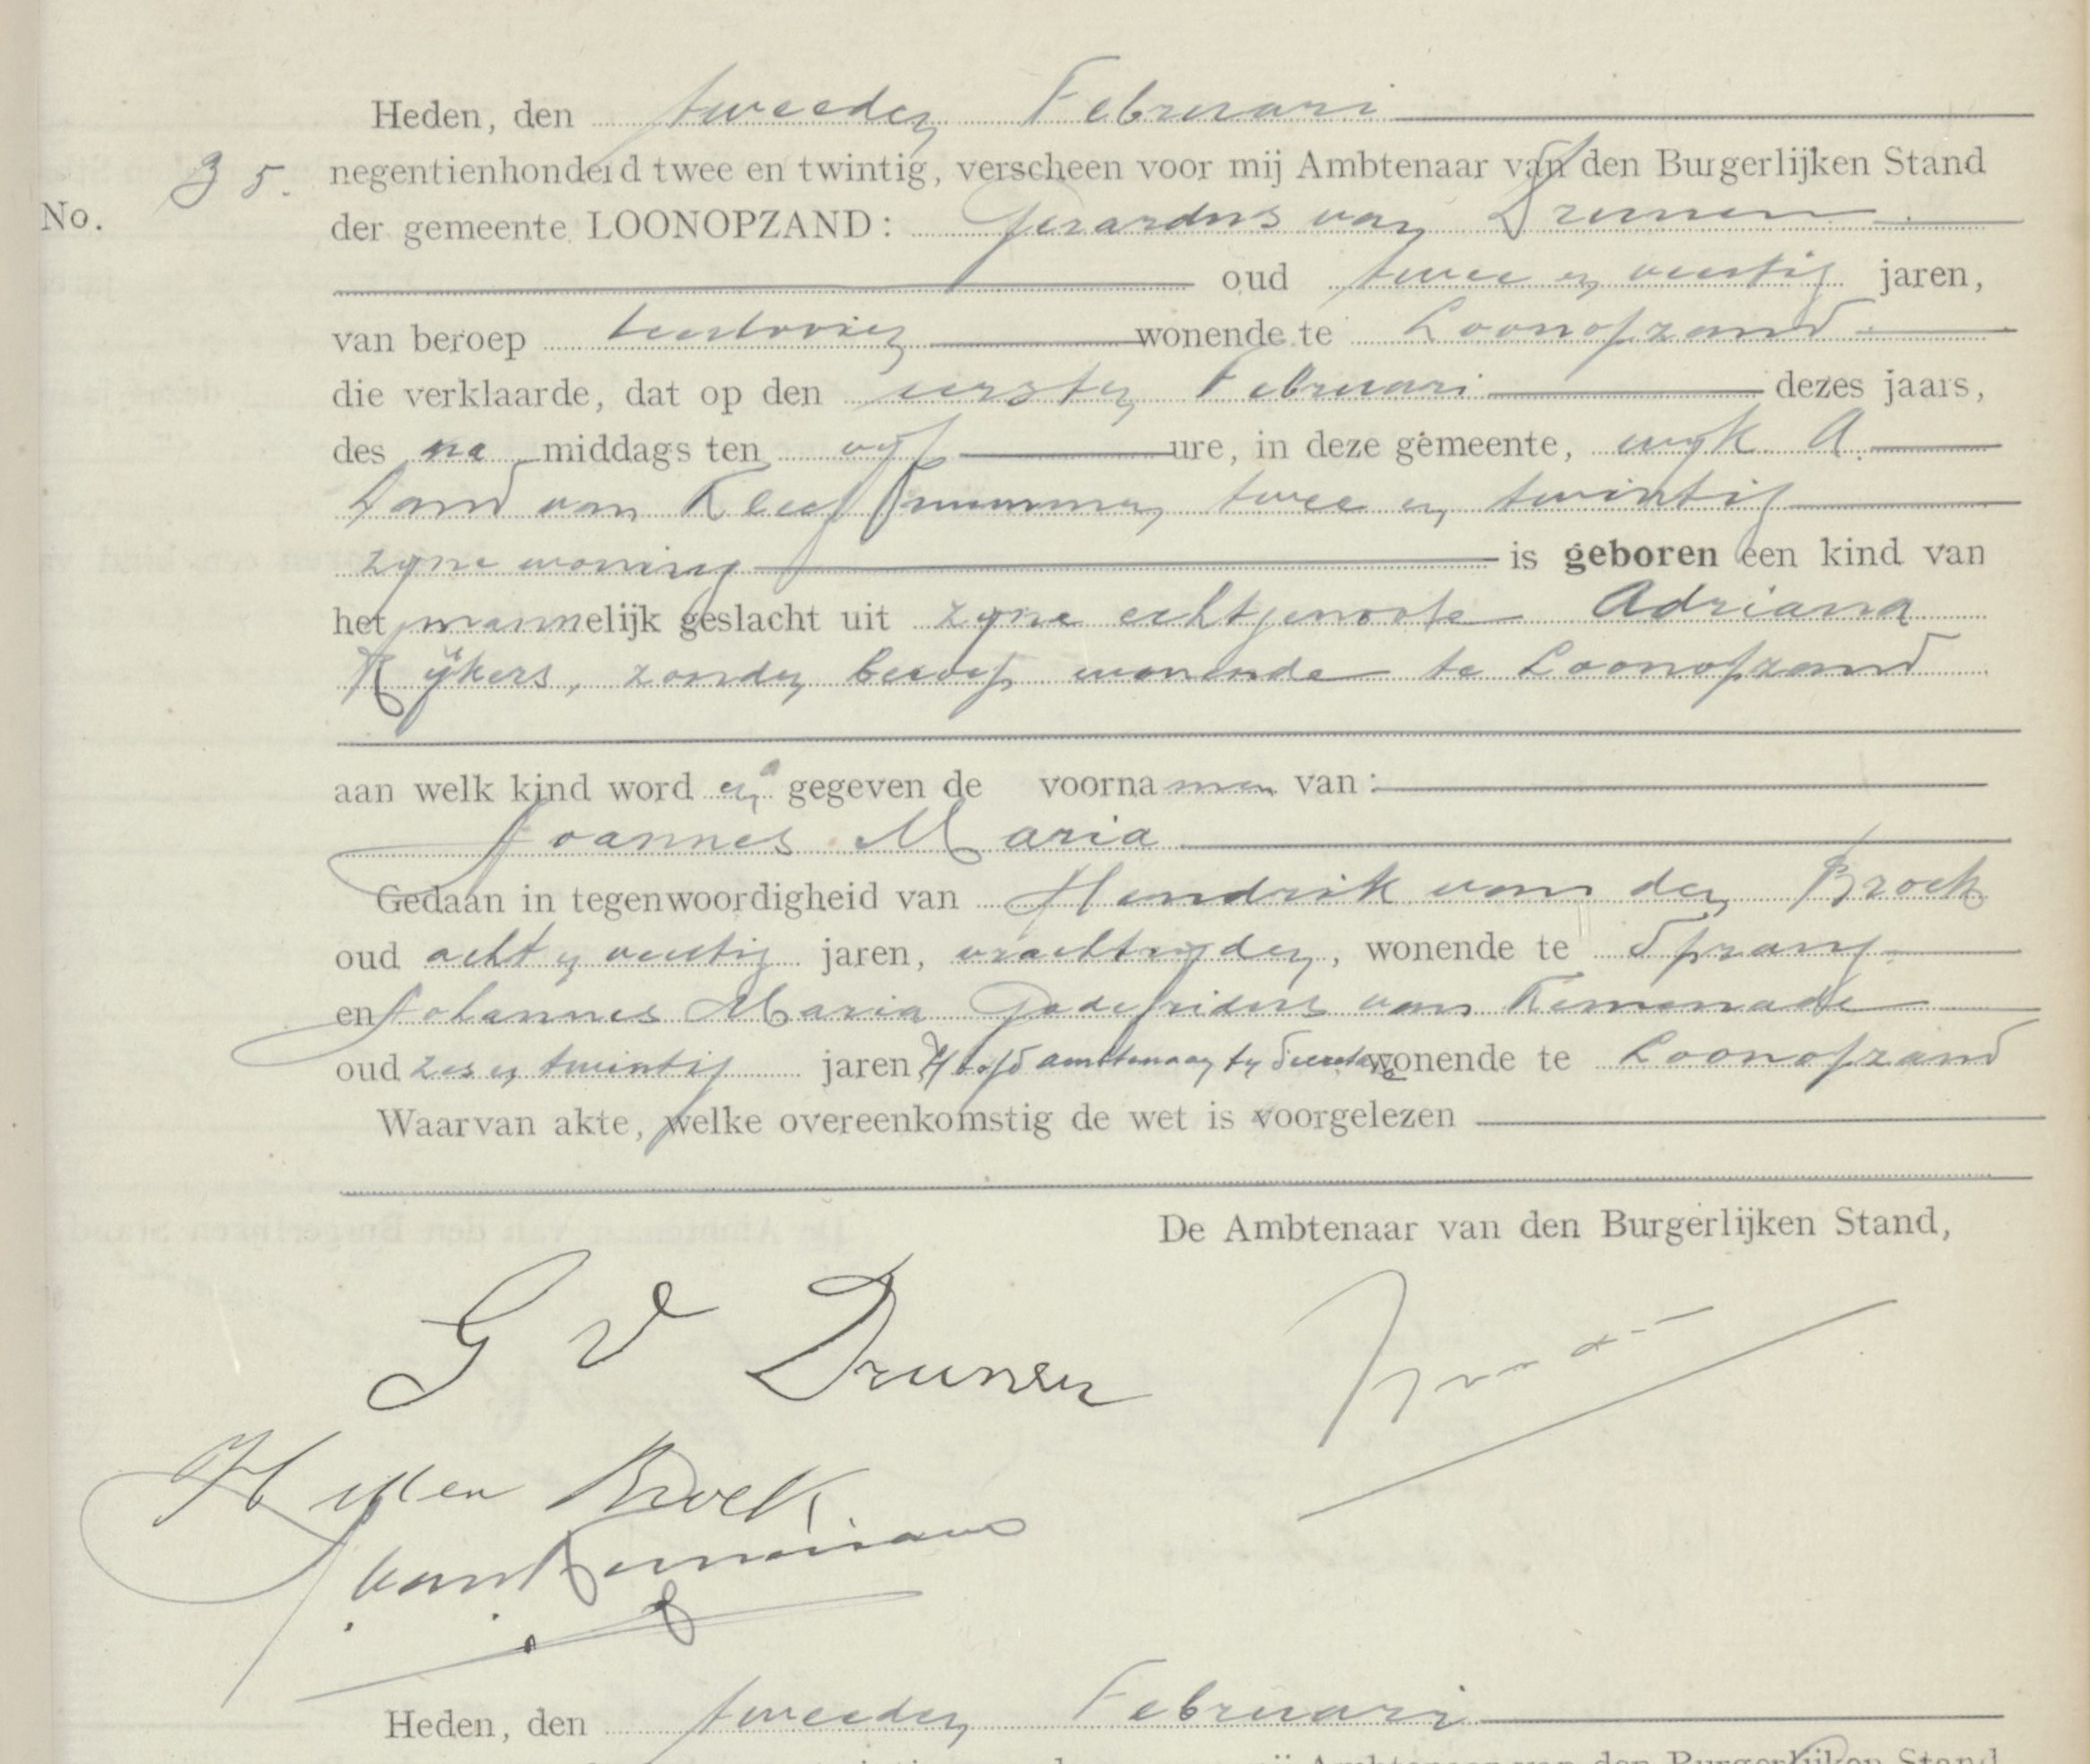 Heden, den tweeden Februari
negentienhonderd twee en twintig, verscheen voor mij Ambtenaar van den Burgerlijken Stand
No. 35.
der gemeente LOONOPZAND: Gerardus van Drunen
oud twee en veertig jaren,
van beroep wonende te Loonopzand
die verklaarde, dat op den eersten Februari dezes jaars,
des na middags ten vyf ure, in deze gemeente, wyk A.
Land van Kleef nummer twee en twintig
zyne woning is geboren een kind van
het mannelijk geslacht uit zyne echtgenoote Adriana
Rijkers, zonder beroep wonende te Loonopzand
aan welk kind word en gegeven de voornamen van:
Joannes Maria
Gedaan in tegenwoordigheid van Hendrik van den Broek
oud acht en veertig jaren, vrachtryder, wonende te Sprang
en Johannes Maria Godefridus van Kemenade
oud zes en twintig jaren, Hoofdambtenaar ter Secretarie wonende te Loonopzand
Waarvan akte, welke overeenkomstig de wet is voorgelezen
De Ambtenaar van den Burgerlijken Stand,
G v Drunen
H vd en Broek
van Kemenade
Heden, den tweeden Februari